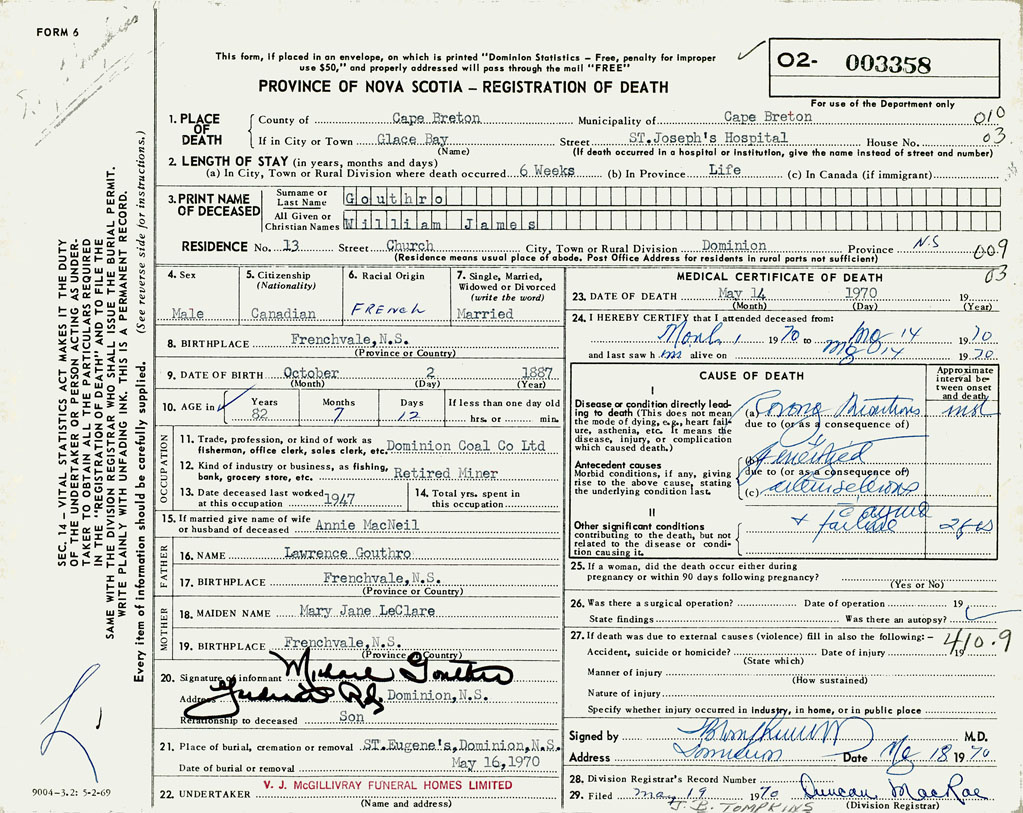 FORM 6
This form, if placed in an envelope, on which is printed "Dominion Statistics – Free, penalty for improper
use $50," and properly addressed will pass through the mail "FREE"
PROVINCE OF NOVA SCOTIA – REGISTRATION OF DEATH
02- 003358
For use of the Department only
1. PLACE OF DEATH
County of Cape Breton Municipality of Cape Breton 010
If in City or Town Glace Bay Street ST.Joseph's Hospital House No. 03
(Name) (If death occurred in a hospital or institution, give the name instead of street and number)
2. LENGTH OF STAY (in years, months and days)
(a) In City, Town or Rural Division where death occurred 6 Weeks (b) In Province Life (c) In Canada (if immigrant)
3. PRINT NAME OF DECEASED
Surname or Last Name Gouthro
All Given or Christian Names William James
RESIDENCE No. 13 Street Church City, Town or Rural Division Dominion Province N.S 009
(Residence means usual place of abode. Post Office Address for residents in rural parts not sufficient) 03
4. Sex
Male
5. Citizenship
(Nationality)
Canadian
6. Racial Origin
FRENCH
7. Single, Married,
Widowed or Divorced
(write the word)
Married
8. BIRTHPLACE Frenchvale, N.S.
(Province or Country)
9. DATE OF BIRTH October 2 1887
(Month) (Day) (Year)
10. AGE in Years Months Days If less than one day old
82 7 12 hrs. or min.
OCCUPATION
11. Trade, profession, or kind of work as
fisherman, office clerk, sales clerk, etc. Dominion Coal Co Ltd
12. Kind of industry or business, as fishing,
bank, grocery store, etc. Retired Miner
13. Date deceased last worked
at this occupation 1947
14. Total yrs. spent in
this occupation
15. If married give name of wife
or husband of deceased Annie MacNeil
FATHER
16. NAME Lawrence Gouthro
17. BIRTHPLACE Frenchvale, N.S.
(Province or Country)
MOTHER
18. MAIDEN NAME Mary Jane LeClare
19. BIRTHPLACE Frenchvale, N.S.
(Province or Country)
20. Signature of informant Gouthro
Address Rd. Dominion, N.S.
Relationship to deceased Son
21. Place of burial, cremation or removal ST.Eugene's,Dominion,N.S.
Date of burial or removal May 16,1970
22. UNDERTAKER V. J. McGILLIVRAY FUNERAL HOMES LIMITED
(Name and address)
MEDICAL CERTIFICATE OF DEATH
23. DATE OF DEATH May 14 1970 19
(Month) (Day) (Year)
24. I HEREBY CERTIFY that I attended deceased from:
1 1970 to 14 1970
and last saw him alive on 14 1970
CAUSE OF DEATH
Approximate
interval be-
tween onset
and death
I
Disease or condition directly lead-
ing to death (This does not mean
the mode of dying, e.g., heart fail-
ure, asthenia, etc. It means the
disease, injury, or complication
which caused death.)
(a)
due to (or as a consequence of)
Antecedent causes
Morbid conditions, if any, giving
rise to the above cause, stating
the underlying condition last.
(b)
due to (or as a consequence of)
(c)
II
Other significant conditions
contributing to the death, but not
related to the disease or condi-
tion causing it.
failure
25. If a woman, did the death occur either during
pregnancy or within 90 days following pregnancy?
(Yes or No)
26. Was there a surgical operation? Date of operation 19
State findings Was there an autopsy?
27. If death was due to external causes (violence) fill in also the following: – 410.9
Accident, suicide or homicide? Date of injury 19
(State which)
Manner of injury
(How sustained)
Nature of injury
Specify whether injury occurred in industry, in home, or in public place
Signed by M.D.
Address Dominion Date 18 1970
28. Division Registrar's Record Number
29. Filed May 19 1970 Duncan MacRae
(Division Registrar)
J. B. TOMPKINS
SEC. 14 – VITAL STATISTICS ACT MAKES IT THE DUTY
OF THE UNDERTAKER OR PERSON ACTING AS UNDER-
TAKER TO OBTAIN ALL THE PARTICULARS REQUIRED
IN THE "REGISTRATION OF DEATH" AND TO FILE THE
SAME WITH THE DIVISION REGISTRAR WHO SHALL ISSUE THE BURIAL PERMIT.
WRITE PLAINLY WITH UNFADING INK. THIS IS A PERMANENT RECORD.
Every item of information should be carefully supplied. (See reverse side for instructions.)
9004–3.2: 5-2-69